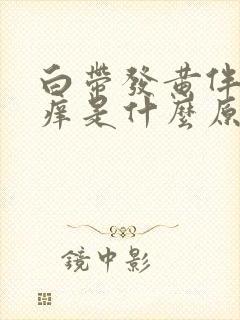 白帶發黃伴
癢是什麼原
鏡中影